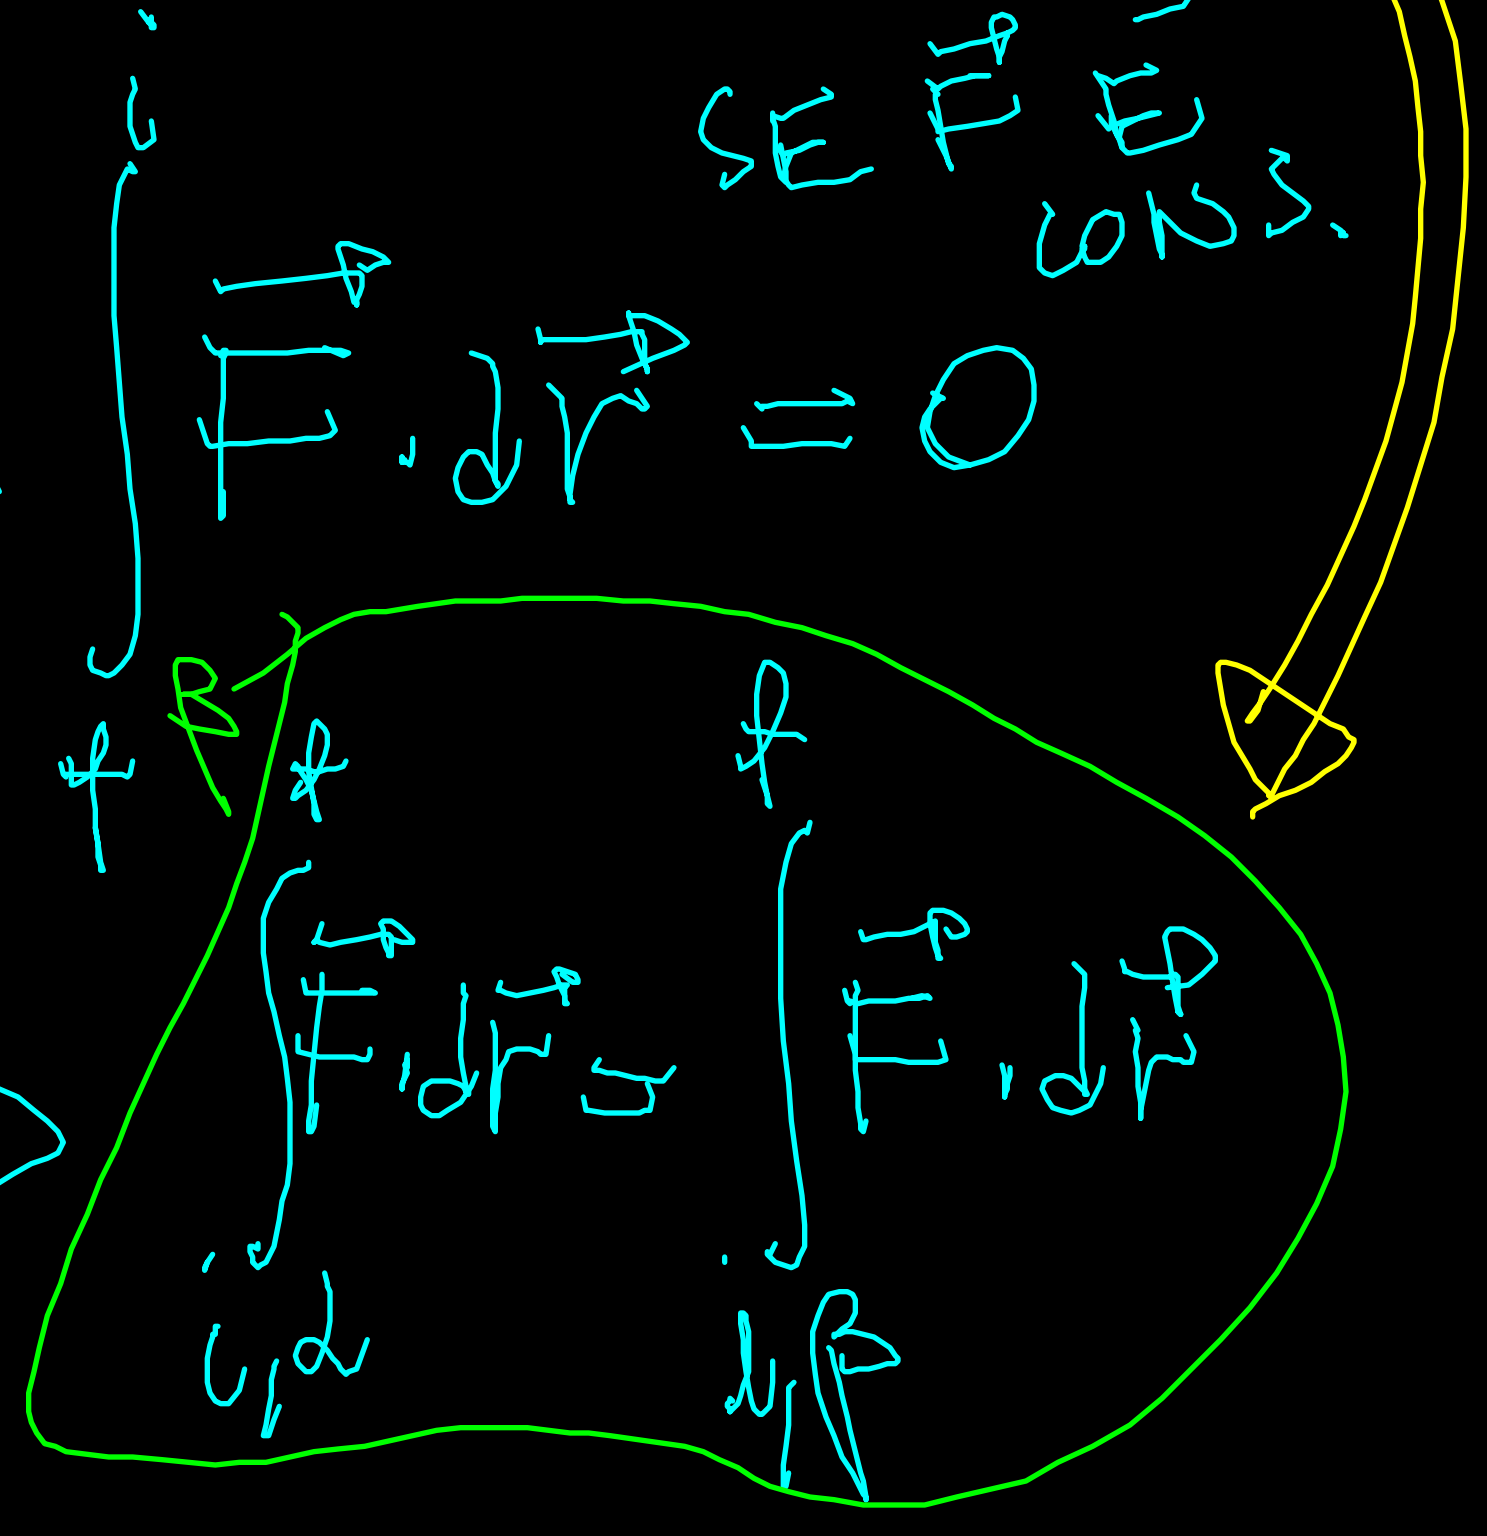 SE F⃗ È
CONS.
∫ᵢᶠ F⃗ . dr⃗ = 0
R
∫ᵢ,αᶠ F⃗ . dr⃗ = ∫ᵢ,βᶠ F⃗ . dr⃗